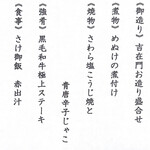 《御造り》吉在門お造り盛合せ
《煮物》めぬけの煮付け
《焼物》さわら塩こうじ焼と
青唐辛子じゃこ
《強肴》黒毛和牛極上ステーキ
《食事》さけ御飯　赤出汁